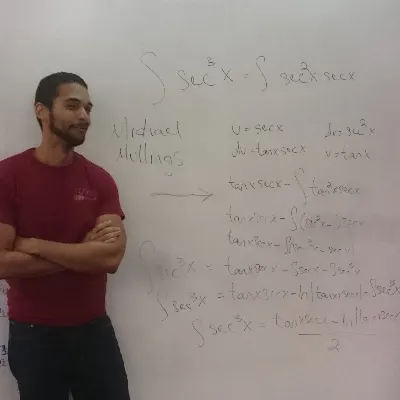 ∫ sec³x = ∫ sec²x secx
Michael
Mullings
u = secx dv = sec²x
du = tanxsecx v = tanx
→ tanxsecx - ∫ tan²xsecx
tanxsecx - ∫(sec²x-1)secx
tanxsecx - ∫sec³x - secx
∫sec³x = tanxsecx - ∫secx - ∫sec³x
∫sec³x = tanxsecx - ln|tanx+secx| - ∫sec³x
∫sec³x = tanxsecx - ln|tanx+secx|
2